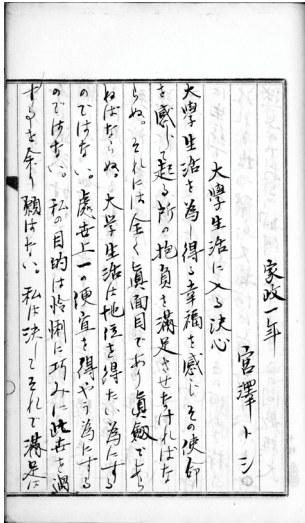 家政一年
宮澤トシ
大學生活に入る決心
大學生活を為し得る幸福を感じその使命
を感じて起る所の抱負を満足させたければな
らぬ。それには全く眞面目であり眞劔であら
ねばならぬ。大学生活は地位を得たい為にする
のではない。處世上一の便宜を得やう為にする
のではない。私の目的は怜悧に巧みに此世を過
すを余り願はない。私は決してそれで満足は